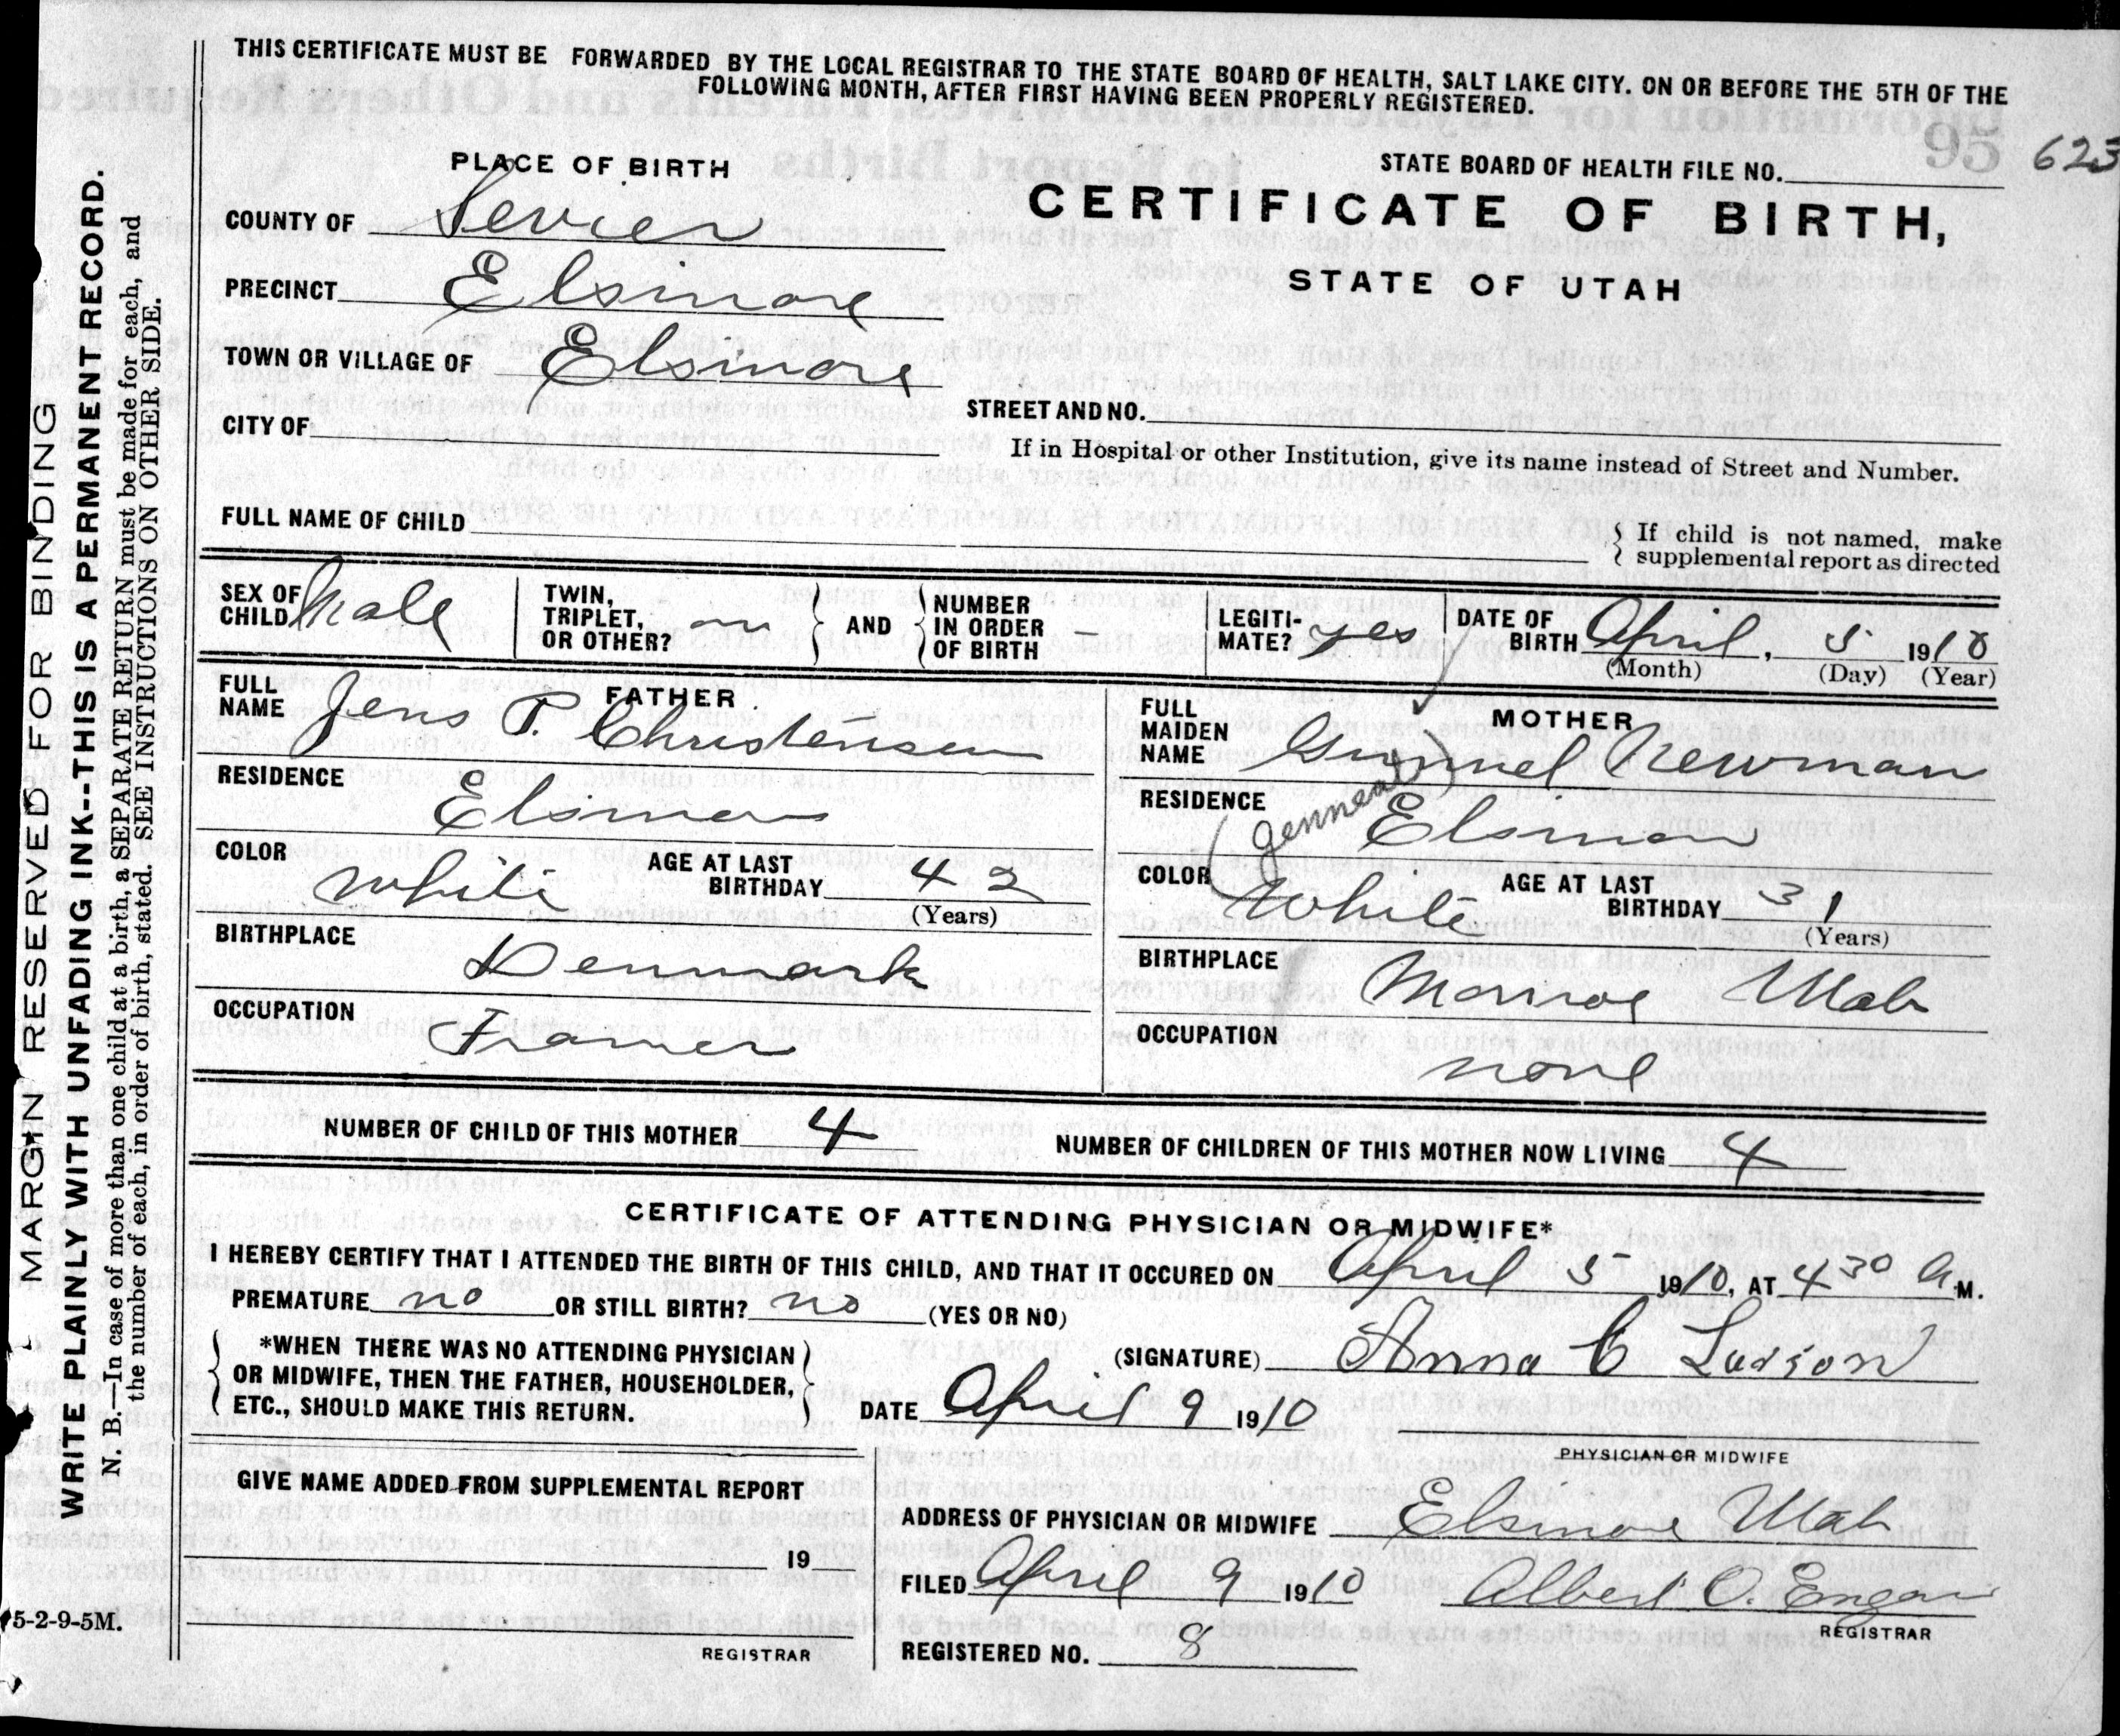 THIS CERTIFICATE MUST BE FORWARDED BY THE LOCAL REGISTRAR TO THE STATE BOARD OF HEALTH, SALT LAKE CITY. ON OR BEFORE THE 5TH OF THE
FOLLOWING MONTH, AFTER FIRST HAVING BEEN PROPERLY REGISTERED.
95 623
PLACE OF BIRTH
STATE BOARD OF HEALTH FILE NO.
CERTIFICATE OF BIRTH,
STATE OF UTAH
COUNTY OF Sevier
PRECINCT Elsinore
TOWN OR VILLAGE OF Elsinore
STREET AND NO.
CITY OF
If in Hospital or other Institution, give its name instead of Street and Number.
FULL NAME OF CHILD
{ If child is not named, make
supplemental report as directed
SEX OF CHILD Male
TWIN, TRIPLET, OR OTHER?
AND NUMBER IN ORDER OF BIRTH —
LEGITI-MATE? yes
DATE OF BIRTH April, 5 1910
(Month) (Day) (Year)
FATHER
FULL NAME Jens P. Christensen
RESIDENCE Elsinore
COLOR White
AGE AT LAST BIRTHDAY 42
(Years)
BIRTHPLACE Denmark
OCCUPATION Framer
MOTHER
FULL MAIDEN NAME Gunnel Newman
(Jenneal)
RESIDENCE Elsinor
COLOR White
AGE AT LAST BIRTHDAY 31
(Years)
BIRTHPLACE Monroe Utah
OCCUPATION none
NUMBER OF CHILD OF THIS MOTHER 4
NUMBER OF CHILDREN OF THIS MOTHER NOW LIVING 4
CERTIFICATE OF ATTENDING PHYSICIAN OR MIDWIFE*
I HEREBY CERTIFY THAT I ATTENDED THE BIRTH OF THIS CHILD, AND THAT IT OCCURED ON April 5 1910, AT 4 30 A M.
PREMATURE no OR STILL BIRTH? no (YES OR NO)
*WHEN THERE WAS NO ATTENDING PHYSICIAN
OR MIDWIFE, THEN THE FATHER, HOUSEHOLDER,
ETC., SHOULD MAKE THIS RETURN.
(SIGNATURE) Anna C Larson
DATE April 9 1910
PHYSICIAN OR MIDWIFE
GIVE NAME ADDED FROM SUPPLEMENTAL REPORT
19
REGISTRAR
ADDRESS OF PHYSICIAN OR MIDWIFE Elsinore Utah
FILED April 9 1910 Albert O.
REGISTRAR
REGISTERED NO. 8
MARGIN RESERVED FOR BINDING
WRITE PLAINLY WITH UNFADING INK--THIS IS A PERMANENT RECORD.
N. B.—In case of more than one child at a birth, a SEPARATE RETURN must be made for each, and
the number of each, in order of birth, stated. SEE INSTRUCTIONS ON OTHER SIDE.
5-2-9-5M.